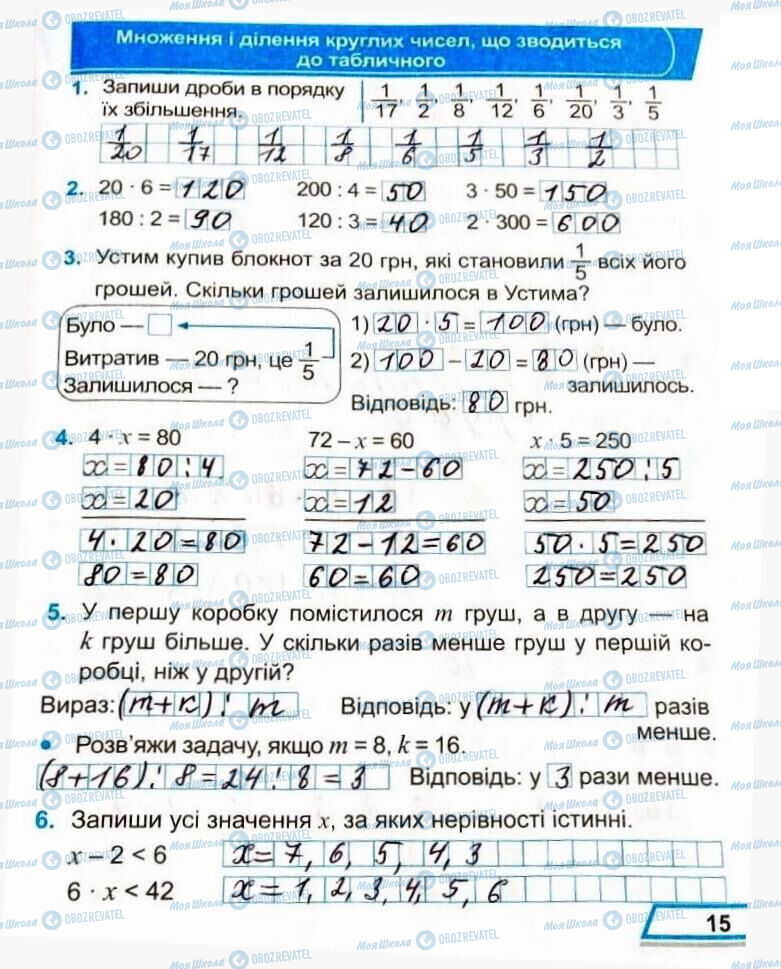 Множення і ділення круглих чисел, що зводиться
до табличного
1. Запиши дроби в порядку їх збільшення. 1/17, 1/2, 1/8, 1/12, 1/6, 1/20, 1/3, 1/5
1/20 1/17 1/12 1/8 1/6 1/5 1/3 1/2
2. 20 · 6 = 120 200 : 4 = 50 3 · 50 = 150
180 : 2 = 90 120 : 3 = 40 2 · 300 = 600
3. Устим купив блокнот за 20 грн, які становили 1/5 всіх його
грошей. Скільки грошей залишилося в Устима?
Було —
Витратив — 20 грн, це 1/5
Залишилося — ?
1) 20 · 5 = 100 (грн) — було.
2) 100 – 20 = 80 (грн) —
залишилось.
Відповідь: 80 грн.
4. 4 · x = 80 72 – x = 60 x · 5 = 250
x = 80 : 4 x = 72 – 60 x = 250 : 5
x = 20 x = 12 x = 50
4 · 20 = 80 72 – 12 = 60 50 · 5 = 250
80 = 80 60 = 60 250 = 250
5. У першу коробку помістилося m груш, а в другу — на
k груш більше. У скільки разів менше груш у першій ко-
робці, ніж у другій?
Вираз: (m+к) : m Відповідь: у (m+к) : m разів
менше.
• Розв’яжи задачу, якщо m = 8, k = 16.
(8+16) : 8 = 24 : 8 = 3 Відповідь: у 3 рази менше.
6. Запиши усі значення x, за яких нерівності істинні.
x – 2 < 6 x = 7, 6, 5, 4, 3
6 · x < 42 x = 1, 2, 3, 4, 5, 6
15
МояШкола OBOZREVATEL